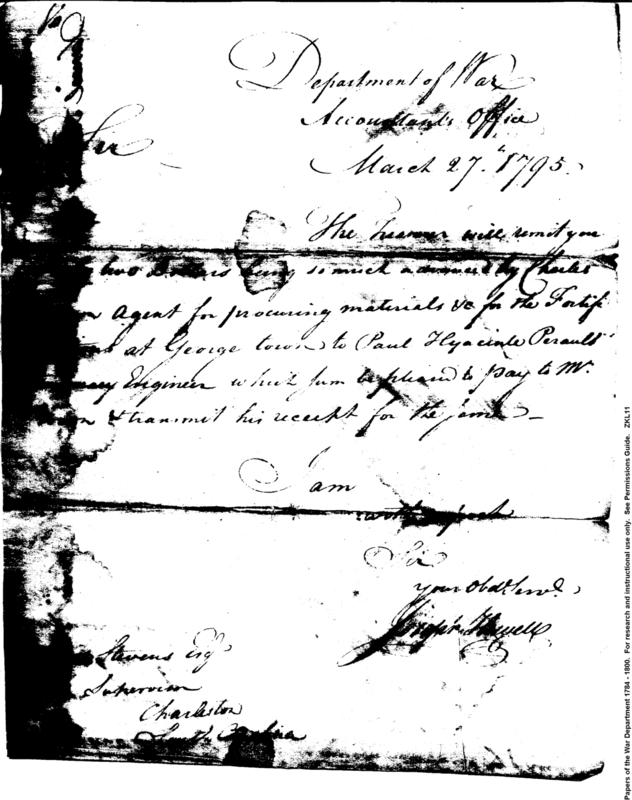 Department of War
Accountants Office
Sir
March 27th 1795.
The Treasurer will remit you
two dollars being so much advanced by Charles
Agent for procuring materials &c for the Fortifi
at George town to Paul Hyacinte Perault
Engineer which sum be pleased to pay to Mr.
& transmit his receipt for the same
I am
with respect
Sir
your Obdt. Servt.
Joseph Howell
Stevens Esqr.
Supervisor
Charleston
South Carolina
Papers of the War Department 1784 - 1800. For research and instructional use only. See Permissions Guide. ZKL11